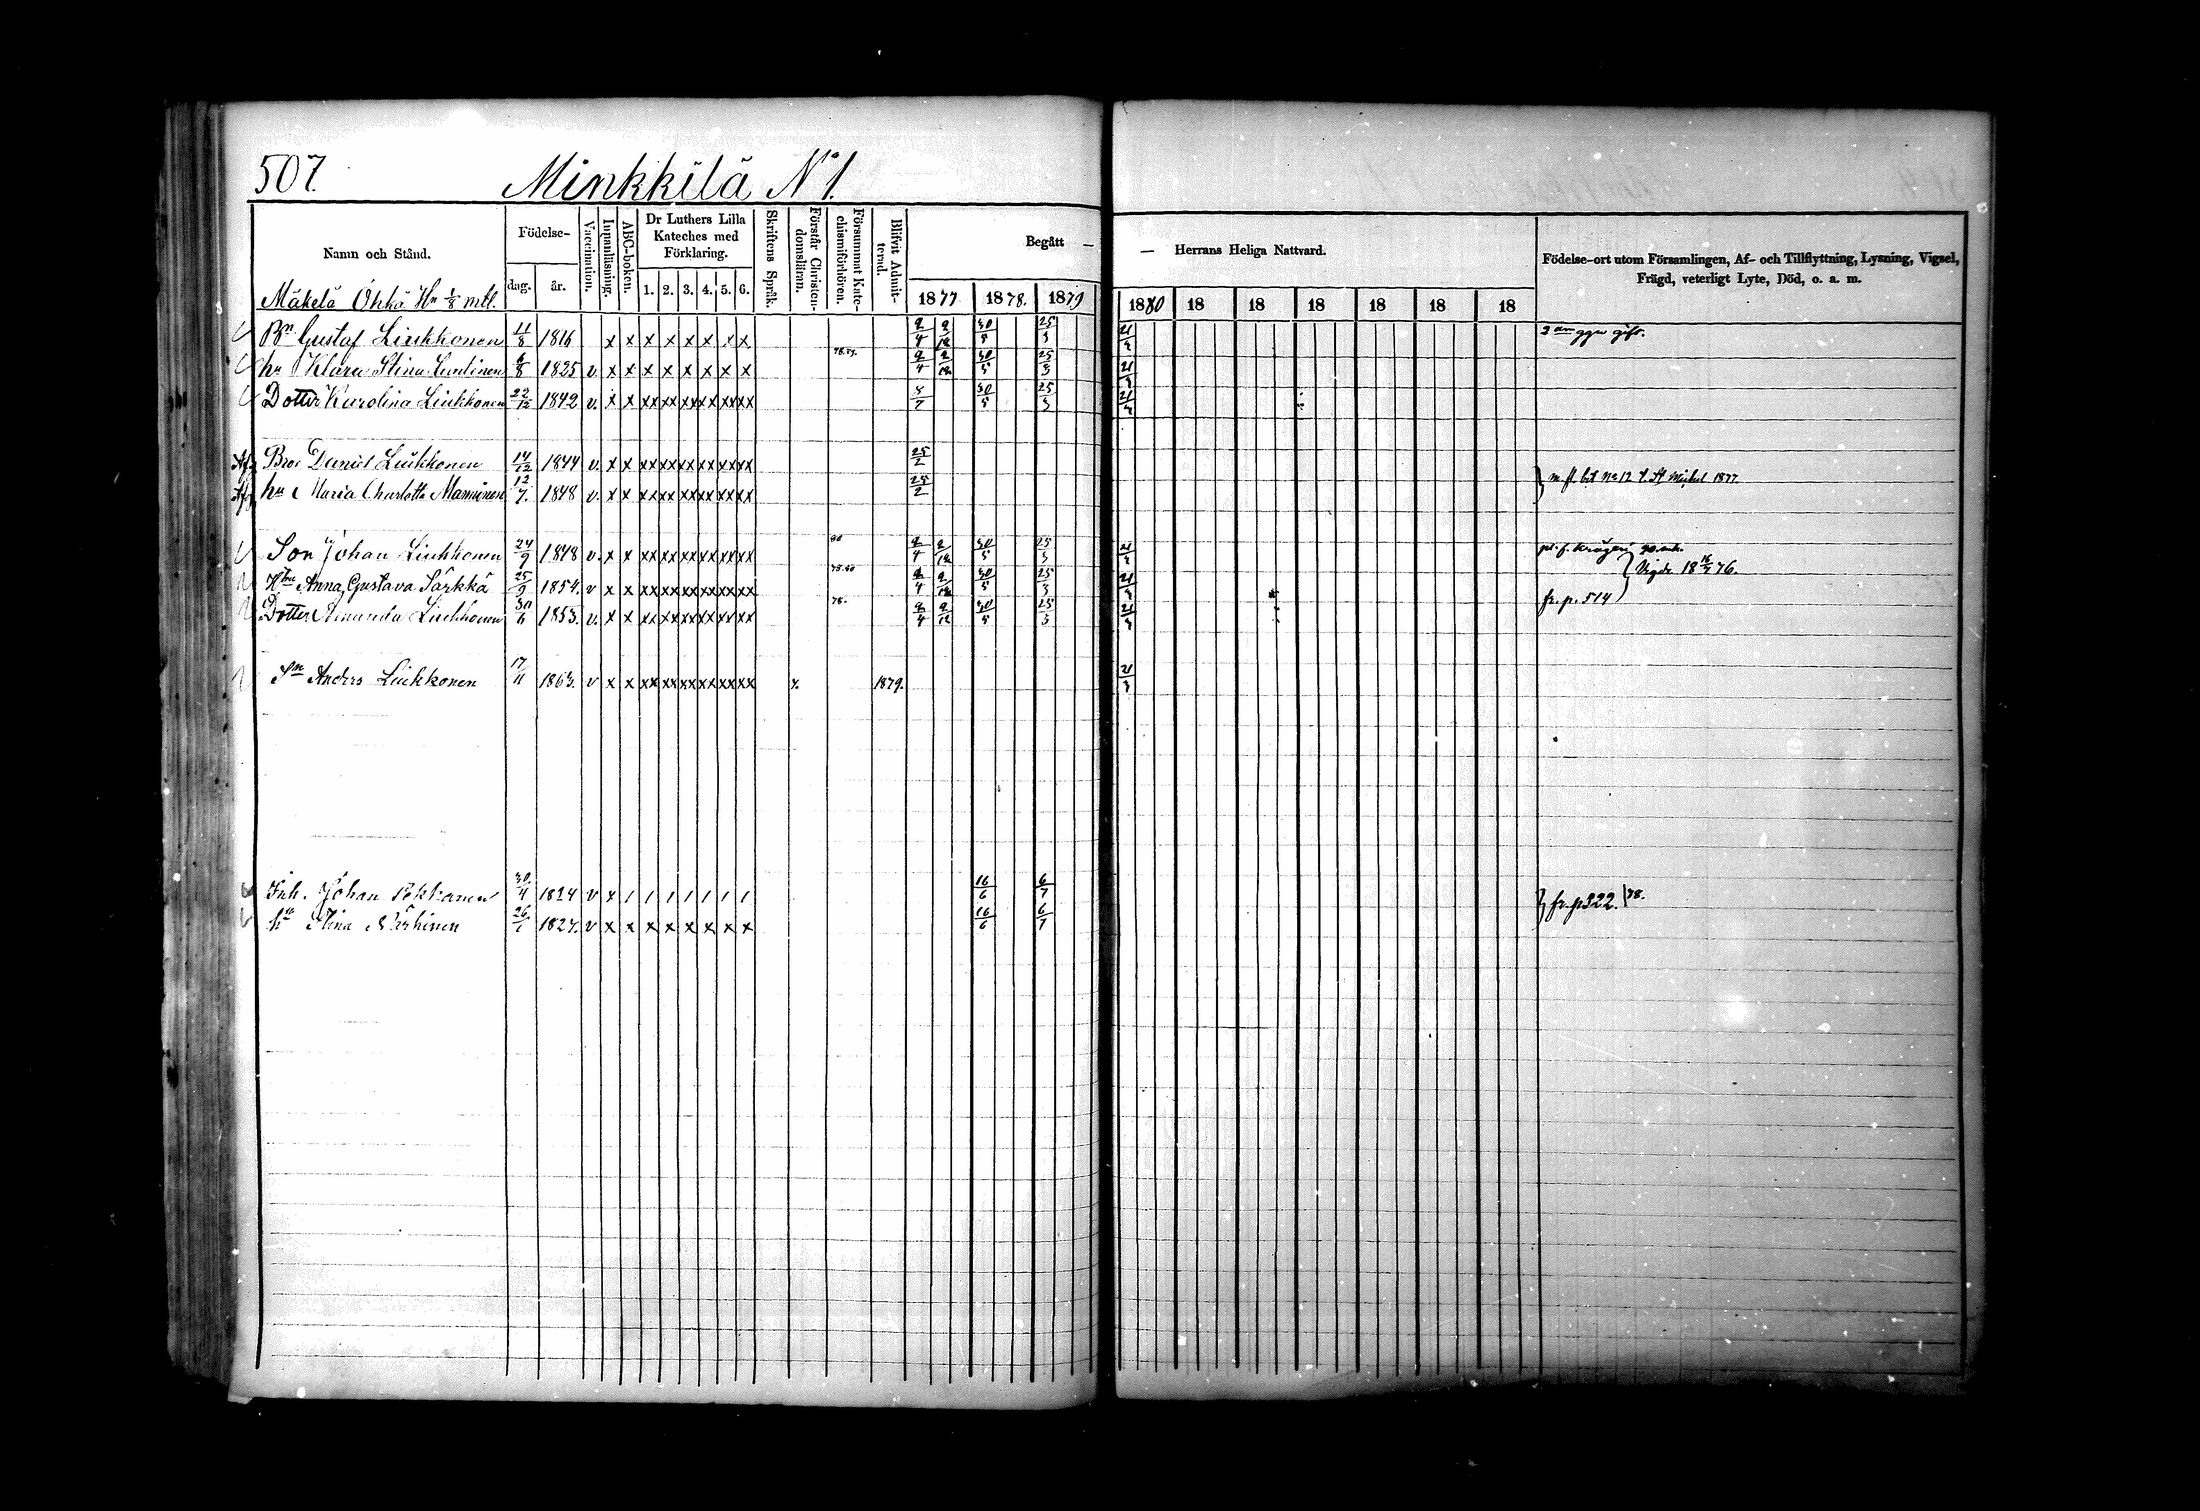 507.
Minkkilä No 1.
Namn och Stånd.
Födelse-
dag.
år.
Vaccination.
Innanläsning.
ABC-boken.
Dr Luthers Lilla Kateches med Förklaring.
1. 2. 3. 4. 5. 6.
Skriftens Språk.
Förstår Christendomsläran.
Försummat Katechismiförhören.
Blifvit Admitterad.
Begått — — Herrans Heliga Nattvard.
1877 1878. 1879 1880 18 18 18 18 18 18
Födelse-ort utom Församlingen, Af- och Tillflyttning, Lysning, Vigsel, Frägd, veterligt Lyte, Död, o. a. m.
Mäkelä Öhkä Hn 1/8 mtl.
Bn Gustaf Liukkonen 11/8 1816 x x x x x x x x 2/4 2/12 30/5 25/3 21/3 2 an ggn gift.
hu Klara Stina 6/8 1825 v x x x x x x x x 78.79. 2/4 2/12 30/5 25/3 21/3
Dotter Karolina Liukkonen 22/12 1842 v. x x xx xx xx xx xx xx 30/5 25/3 21/3
Bror Daniel Liukkonen 14/12 1844 v. x x xx xx xx xx xx xx 25/2
hu Maria Charlotta Manninen 12/7. 1848 v. x x xx xx xx xx xx xx 25/2 m. fl. bet No 12 t. St Michel 1877.
Son Johan Liukkonen 24/9 1848 v. x x xx xx xx xx xx xx 80 2/4 2/12 30/5 25/3 21/3
Hu Anna Gustava Särkkä 25/9 1854. v x x xx xx xx xx xx xx 78.80 2/4 2/12 30/5 25/3 21/3 Vigde 18 16/7 76.
fr. p. 514
Dotter Amanda Liukkonen 30/6 1853. v. x x xx xx xx xx xx xx 78. 2/4 2/12 30/5 25/3 21/3
Sn Anders Liukkonen 17/11 1863. v x x xx xx xx xx xx xx x. 1879. 21/3
Inh. Johan 30/4 1824 v x / / / / / / / 16/6 6/7 fr. p 322. 78.
hu Stina 26/1 1827. v x x x x x x x x 16/6 6/7